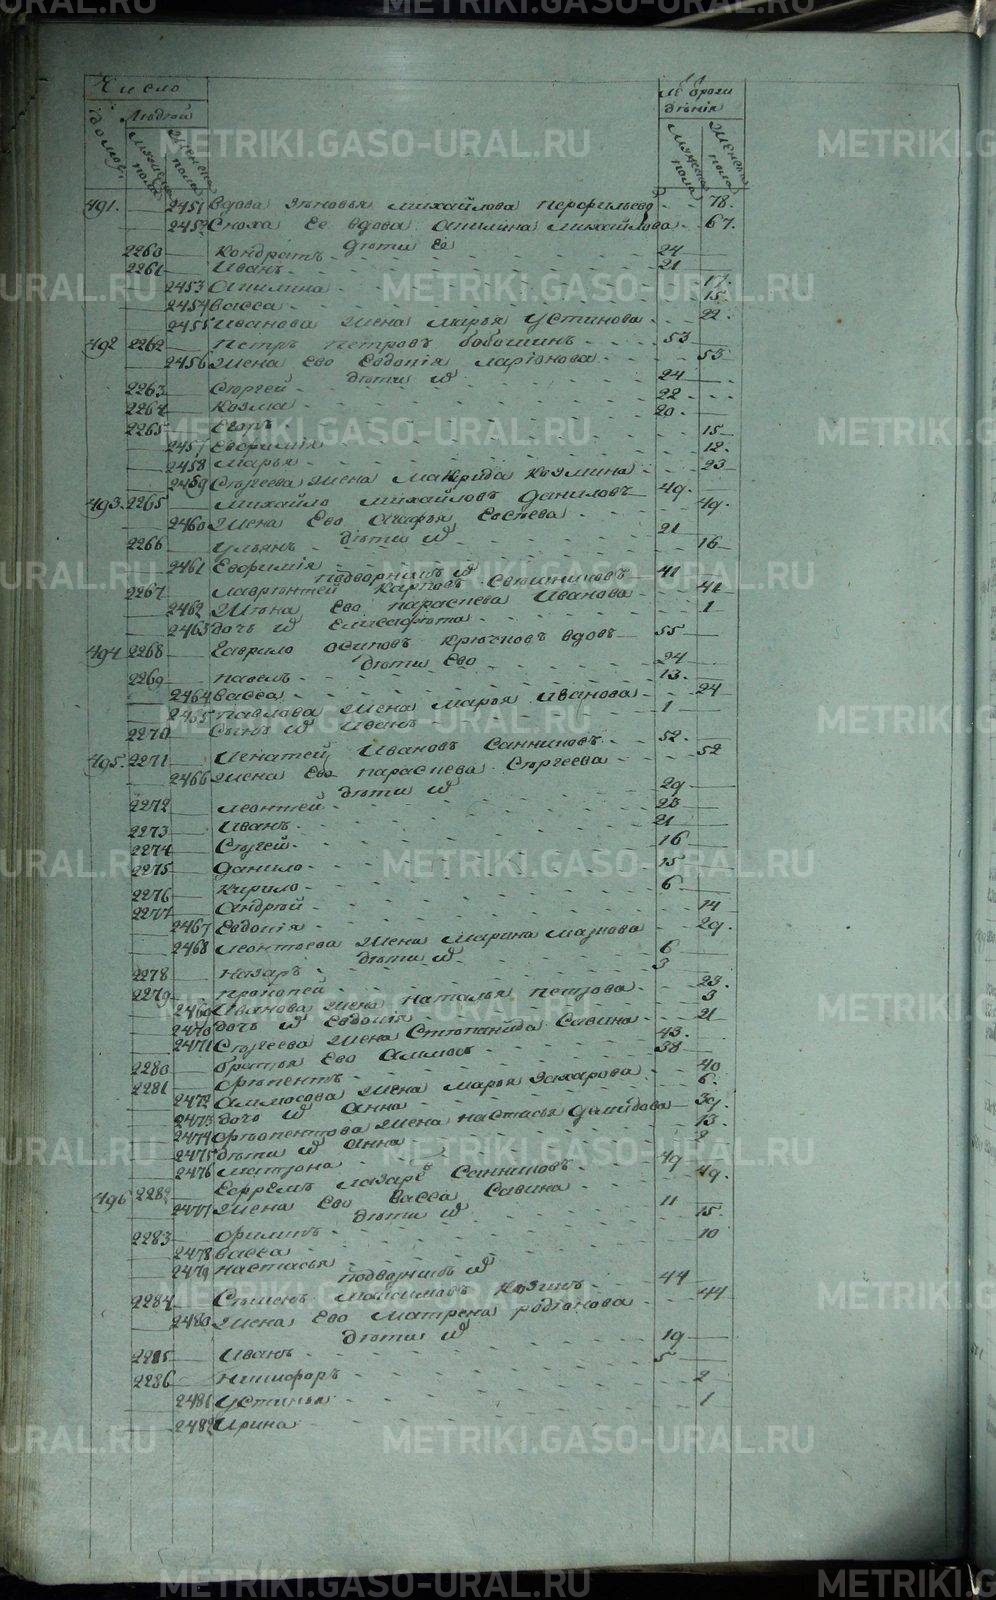 Число
Людѣй
Лѣ ѿ рож
дѣнія
домовъ
мужеска пола
женска пола
мужеска пола
женска пола
491. 2451 Вдова Зѣновья Михайлова Перфильево 78.
2452 Сноха Ее вдова Апилина Михайлова 67.
дѣти Ее
2260 Кондратъ 24
2261 Иванъ 21
2453 Апилина 17.
2454 Васса 15.
2455 Иванова жена Марья Устинова 22.
492 2262 Петръ Петровъ Бобошинъ 53
2456 Жена Ево Евдокія Ларіонова 53
дѣти ихъ
2263 Сѣргей 24
2264 Козма 22
2265 Егоръ 20.
2457 Евфимія 15
2458 Марья 12.
2459 Сѣргеева жена Макрида Козмина 23
493. 2265 Михайло Михайловъ Даниловъ 49.
2460 Жена Ево Агафья Евсѣева 49.
дѣти ихъ
2266 Ульянъ 21
2461 Евфимія 16
подворникъ ихъ
2267 Лаврѣнтей Карповъ 41
2462 Жѣна Ево Параскева Иванова 41
2463 дочь ихъ Елисафѣта 1
494 2268 Гаврило Осиповъ Крючковъ вдовъ 55
дѣти Ево
2269 Павелъ 24
2464 Васса 13.
2465 Павлова жена Марья Иванова 24
2270 Сынъ ихъ Иванъ 1
495. 2271 Игнатей Ивановъ Санниковъ 52.
2466 Жена Ево Параскева Сѣргеева 52
дѣти ихъ
2272 Леонтей 29
2273 Иванъ 23
2274 Сѣргей 21
2275 Данило 16
2276 Кирило 15
2277 Андрѣй 6
2467 Евдокія 14
2468 Леонтьева жена Марина 29.
дѣти ихъ
2278 Назаръ 6
2279 Прокопей 3
2469 Иванова жена Наталья Петрова 23.
2470 дочь ихъ Евдокія 3
2471 Сѣргеева жена Стѣпанида Савина 21
2280 братья Ево Аммосъ 43.
2281 38
2472 Аммосова жена Марья Захарова 40
2473 дочь ихъ Анна 6.
2474 жена Настасья Дѣмидова 39.
2475 дѣти ихъ Анна 13.
2476 Матрона 2
496 2282 Ефрѣмъ Лазаревъ Санниковъ 49
2477 Жена Ево Васса Савина 49.
дѣти ихъ
2283 Филипъ 11
2478 Васса 15.
2479 Настасья 10
подворникъ ихъ
2284 Сѣменъ Максимовъ Козинъ 44
2480 Жена Ево Матрена Родіонова 44
дѣти ихъ
2285 Иванъ 19
2286 Никифоръ 5
2481 Устинья 2
2482 Ирина 1
METRIKI.GASO-URAL.RU